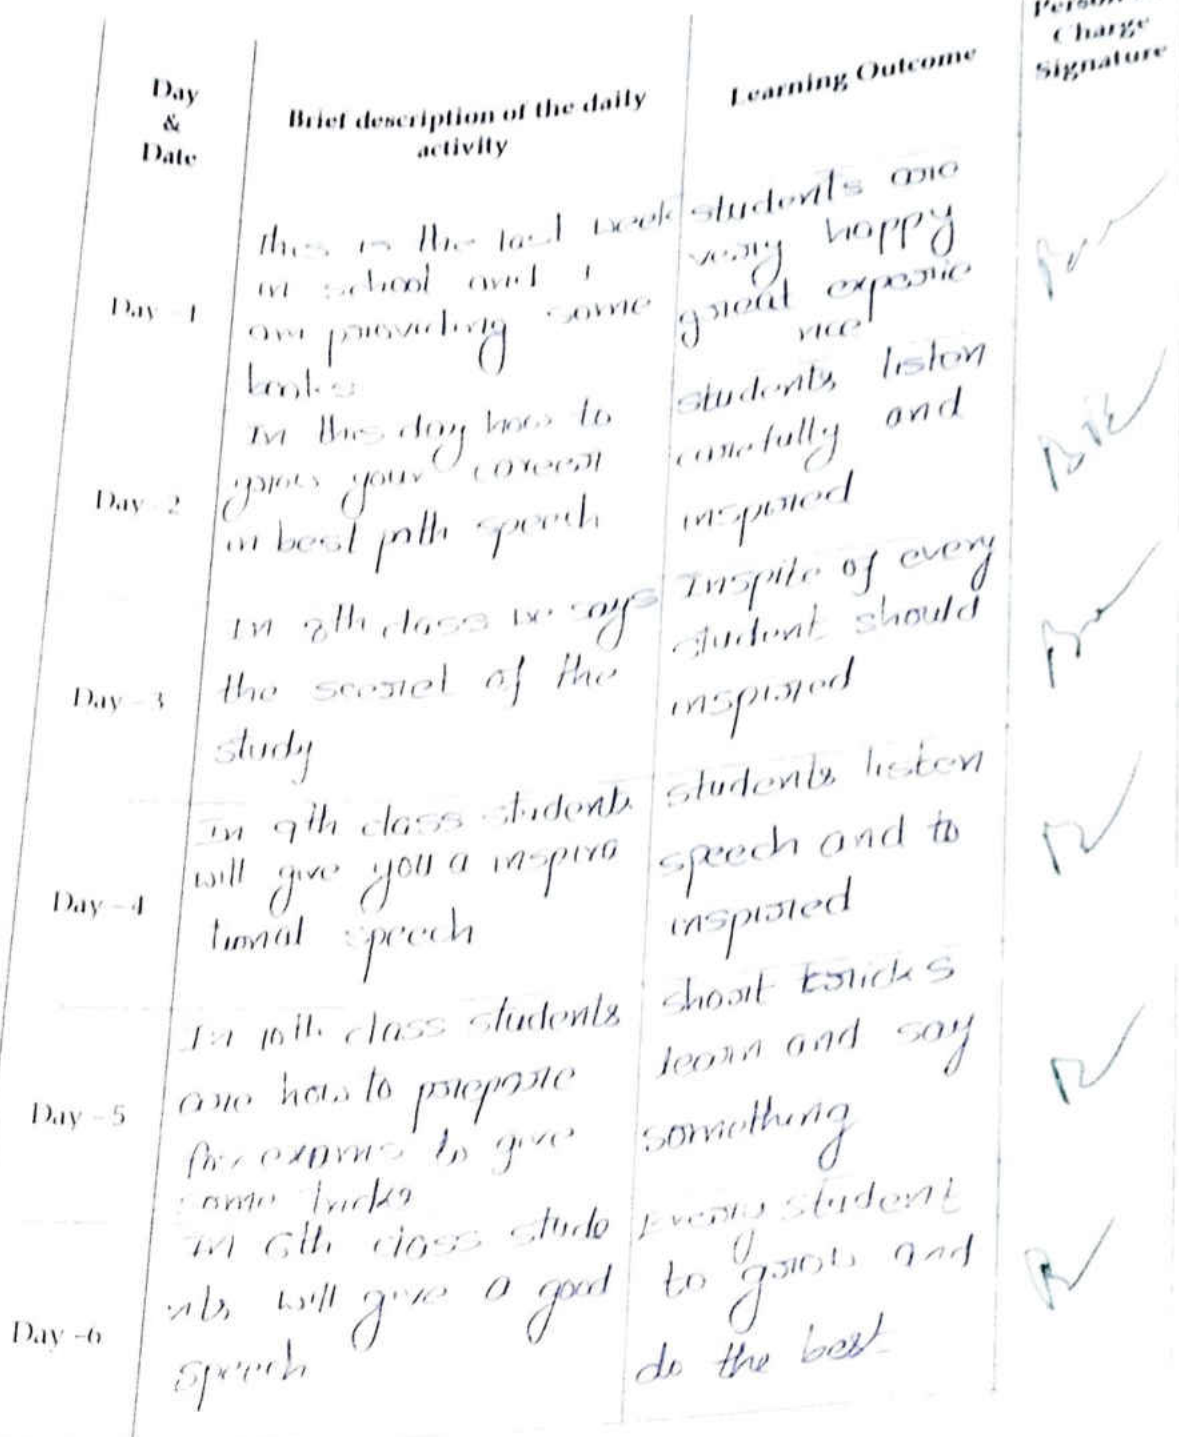 Day
&
Date
Brief description of the daily
activity
Learning Outcome
Charge
Signature
Day - 1
this is the last week
in school and I
am providing some
books
students are
very happy
great experie
nce
Day - 2
In this day how to
grow your career
in best path speech
students listen
carefully and
inspired
Day - 3
In 8th class we says
the secret of the
study
Inspite of every
student should
inspired
Day - 4
In 9th class students
will give you a inspira
tional speech
students listen
speech and to
inspired
Day - 5
In 10th class students
are how to prepare
for exams to give
some tricks
short tricks
learn and say
something
Day -6
In 6th class stude
nts will give a good
speech
Every student
to grow and
do the best